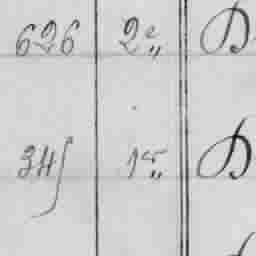 626 2e„ D
345 1er„ D